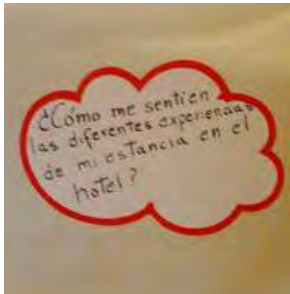 ¿Cómo me sentí en
las diferentes experiencias
de mi estancia en el
hotel?